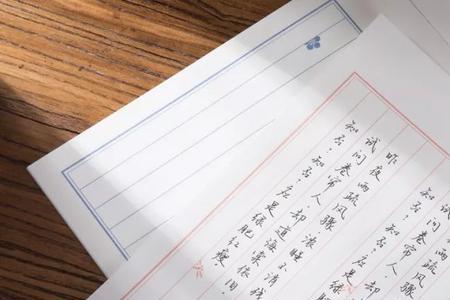 雨疏
试问卷帘人。却
知否？知否？应是绿
昨夜雨疏风骤，浓睡不消残
试问卷帘人，却道海棠依旧
知否？知否？应是绿肥红瘦